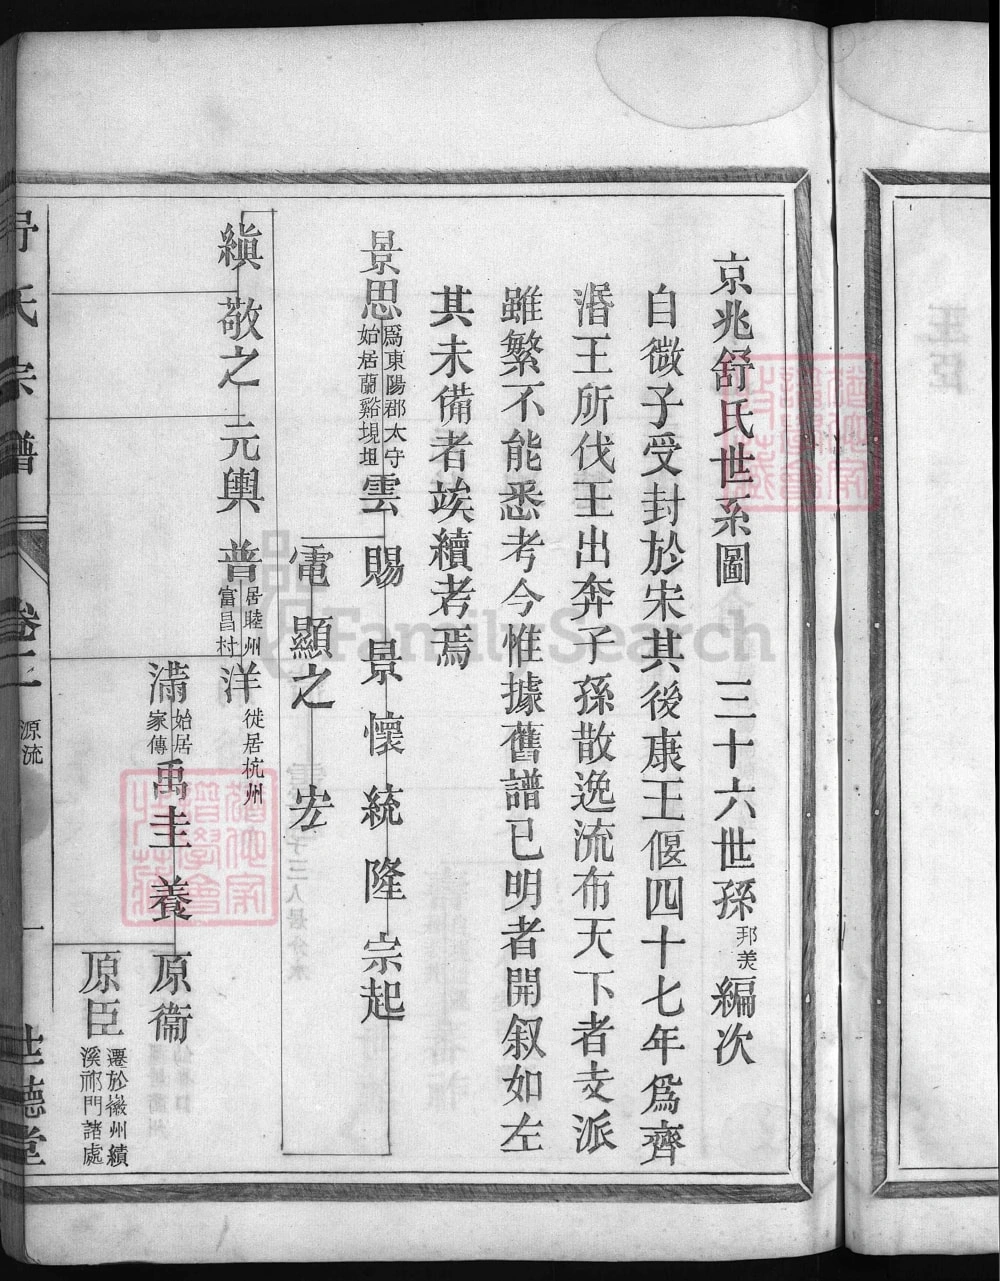 京兆舒氏世系圖　三十六世孫邦美編次
自微子受封於宋其後康王偃四十七年爲齊
湣王所伐王出奔子孫散逸流布天下者支派
雖繁不能悉考今惟據舊譜已明者開叙如左
其未備者竢續考焉
景思爲東陽郡太守始居蘭谿垷坦　雲　賜　景　懷　統　隆　宗起
電　顯之　宏
縝　敬之　元輿　普居睦州富昌村　洋徙居杭州
滿始居家傳　禹　圭　養　原衞
原臣遷於徽州績溪祁門諸處
舒氏宗譜　卷二　源流　一　世德堂
FamilySearch